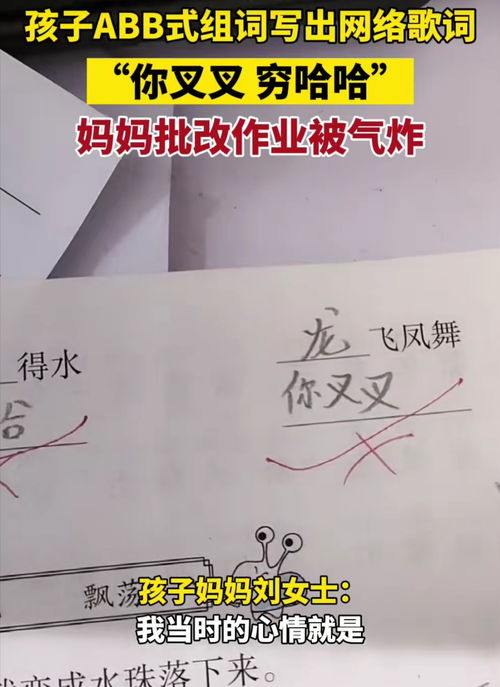 孩子ABB式组词写出网络歌词
“你叉叉 穷哈哈”
妈妈批改作业被气炸
得水
龙飞凤舞
你叉叉
飘荡
孩子妈妈刘女士：
我当时的心情就是
变成水珠落下来。